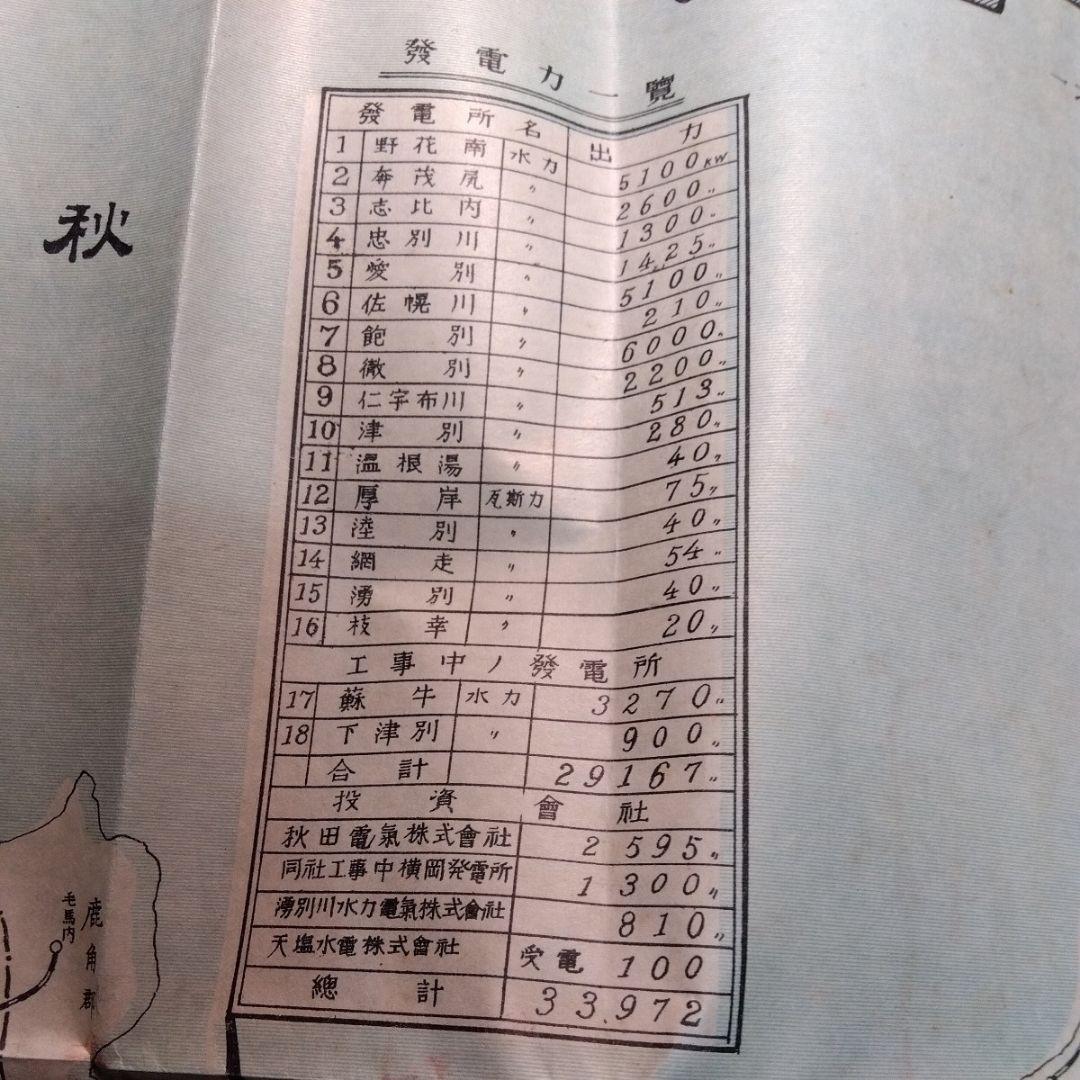 發電力一覽
發電所名 出力
1 野花南 水力 5100KW
2 奔茂尻 〃 2600〃
3 志比内 〃 1300〃
4 忠別川 〃 1425〃
5 愛別 〃 5100〃
6 佐幌川 〃 210〃
7 飽別 〃 6000〃
8 徹別 〃 2200〃
9 仁宇布川 〃 513〃
10 津別 〃 280〃
11 温根湯 〃 40〃
12 厚岸 瓦斯力 75〃
13 陸別 〃 40〃
14 網走 〃 54〃
15 湧別 〃 40〃
16 枝幸 〃 20〃
工事中ノ發電所
17 蘇牛 水力 3270〃
18 下津別 〃 900〃
合計 29167〃
投資會社
秋田電氣株式會社 2595〃
同社工事中横岡発電所 1300〃
湧別川水力電氣株式會社 810〃
天塩水電株式會社 受電 100
總計 33,972
秋
毛馬内
鹿角郡